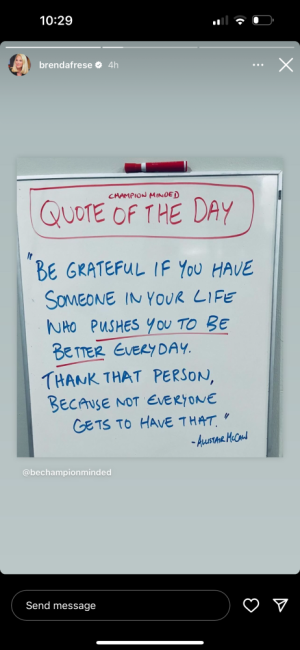 10:29
brendafrese 4h
CHAMPION MINDED
QUOTE OF THE DAY
"BE GRATEFUL IF YOU HAVE
SOMEONE IN YOUR LIFE
WHO PUSHES YOU TO BE
BETTER EVERYDAY.
THANK THAT PERSON,
BECAUSE NOT EVERYONE
GETS TO HAVE THAT."
- ALLISTAIR McCAW
@bechampionminded
Send message